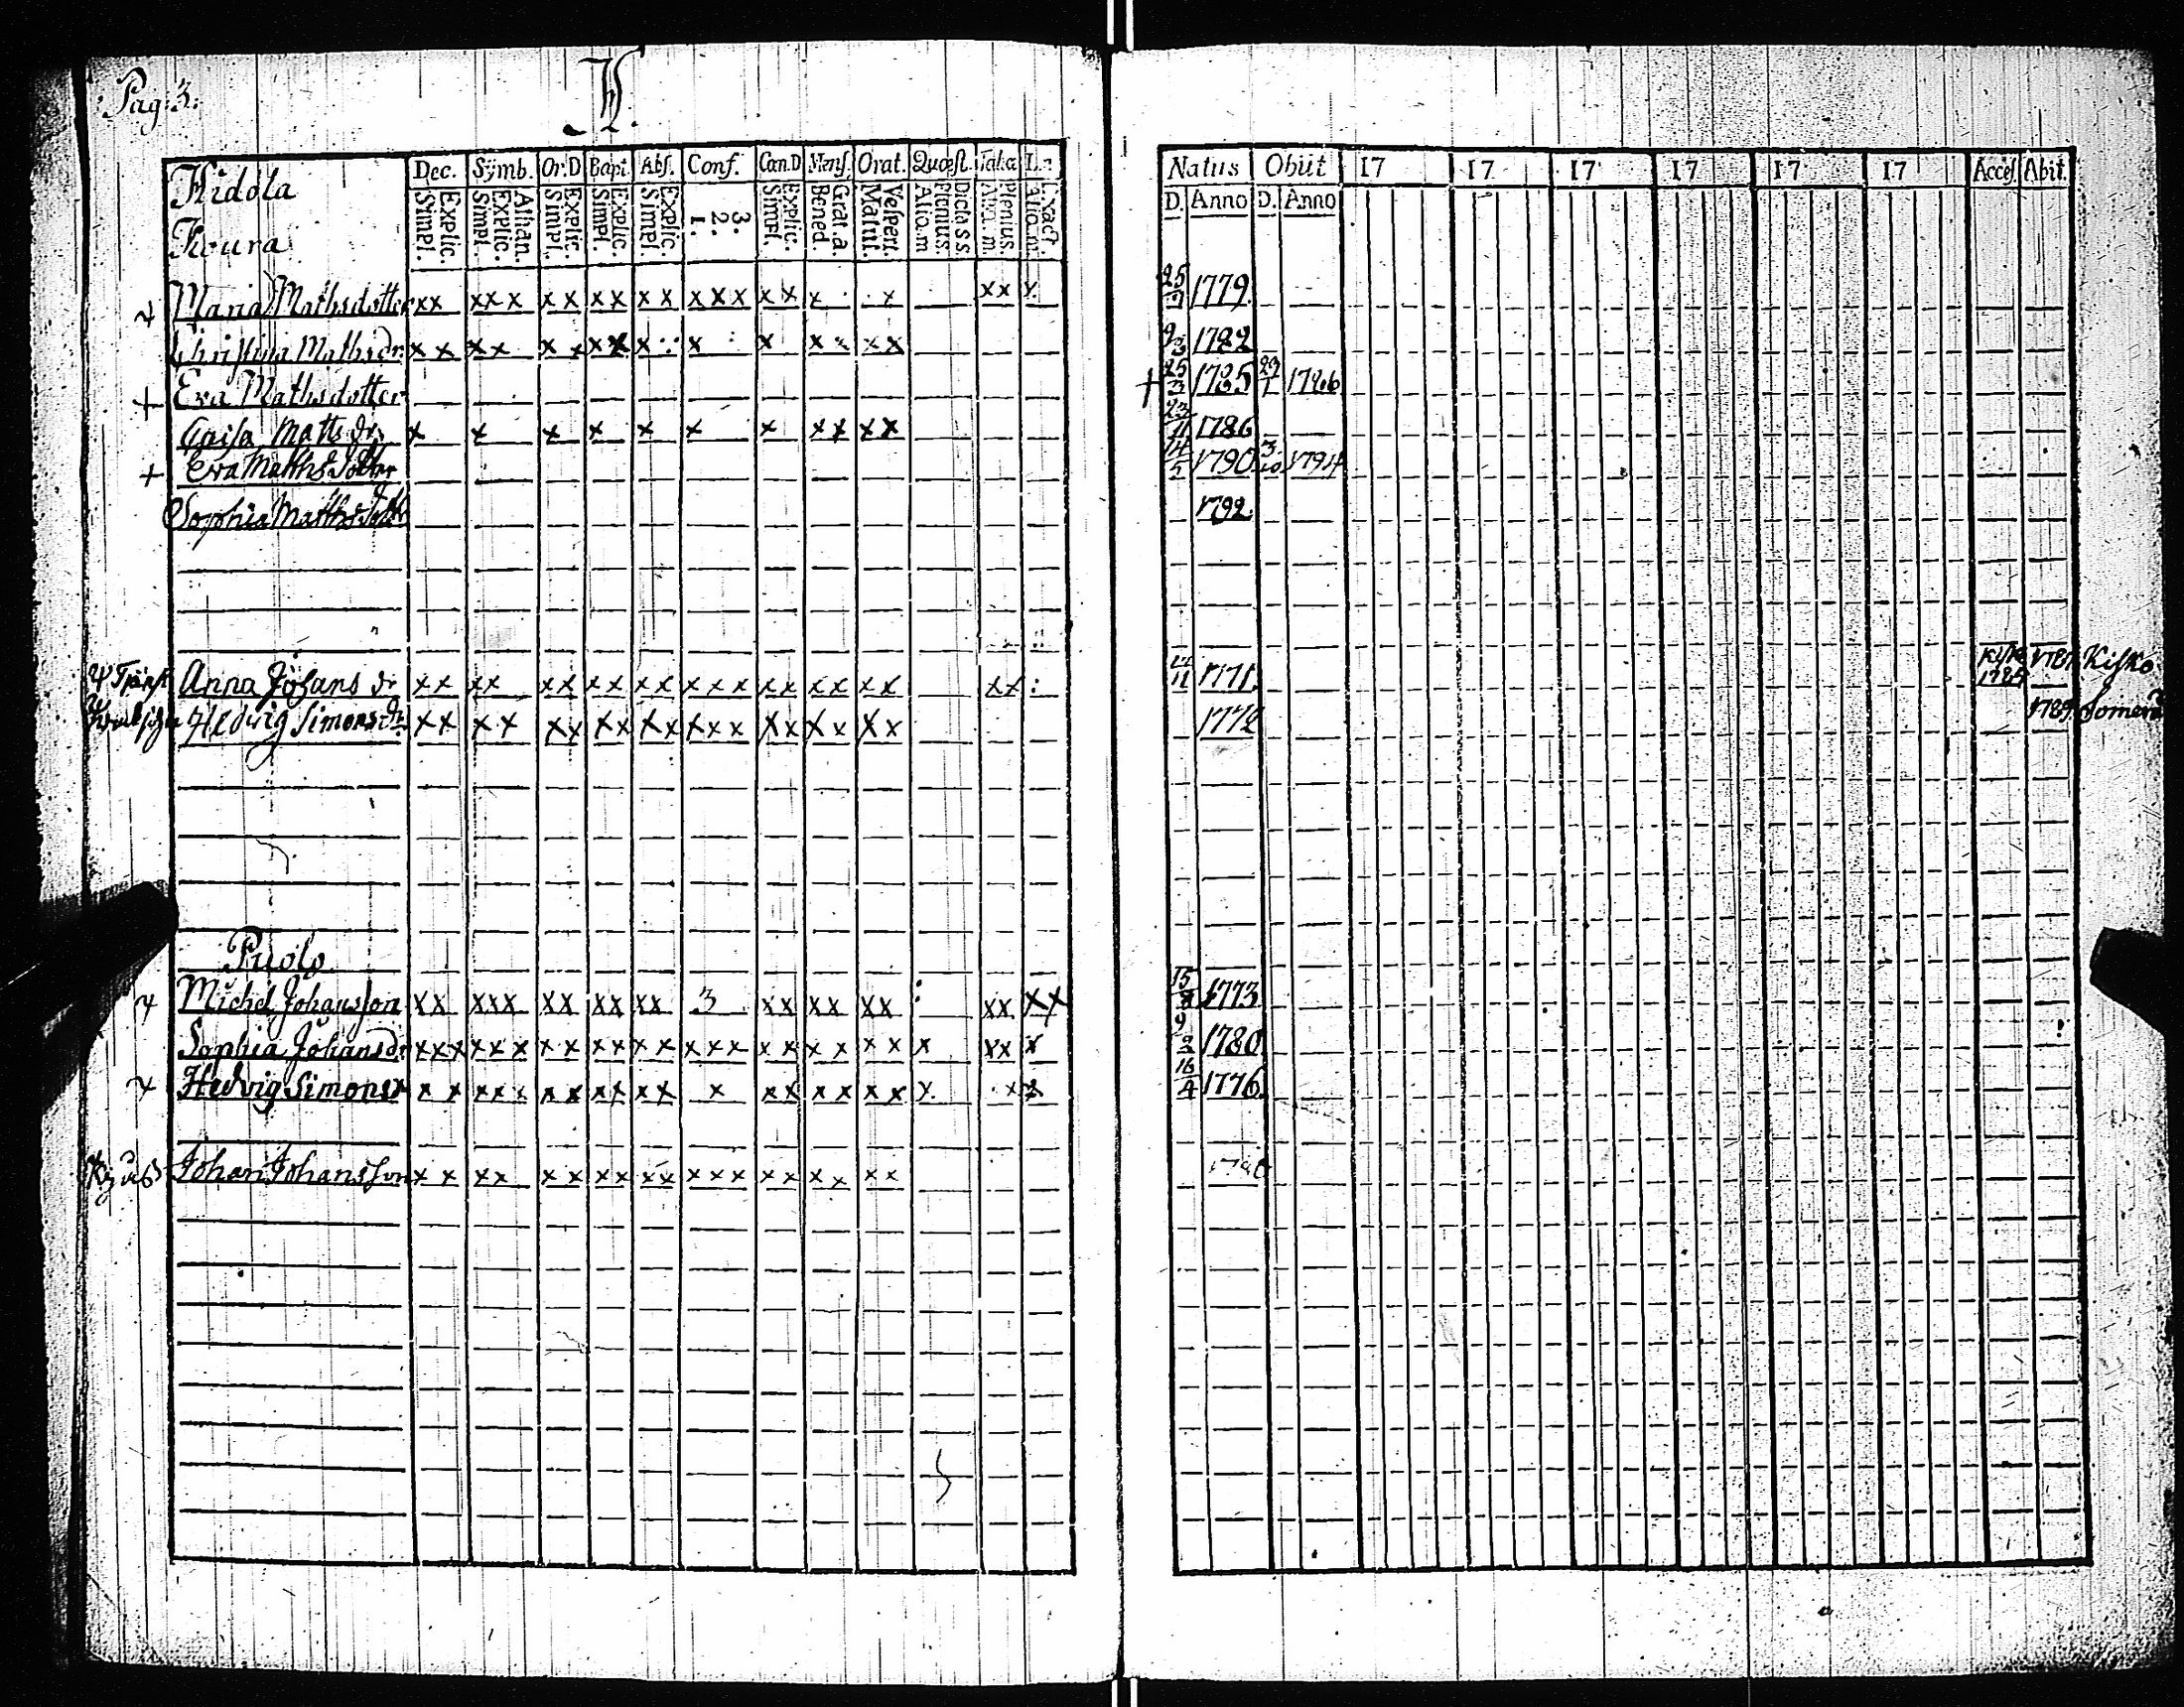 Pag: 3:
H.
Hidola
Koura
Dec. Symb. Or.D Bapt. Abs. Conf. Can.D Mens. Orat. Quæst. Tab.æ
Explic. Simpl. Athan. Explic. Simpl. Explic. Simpl. Explic. Simpl. Explic. Simpl. 3. 2. 1. Explic. Simpl. Grat. a. Bened. Vespert. Matut. Dicta s s. Plenius. Aliq. m Plenius. Aliq. m. Exact. Aliq. m.
Natus Obiit 17 17 17 17 17 17 Acces. Abit.
D. Anno D. Anno
Maria Mathsdotter xx xxx xx xx xx xxx xx x x xx x 25 1779
Christina Mathsdr. xx xx xx xx x x x xx xx 1782
+ Eva Mathsdotter + 25/3 1785 1786
Caisa Matts dr. x x x x x x x xx xx 23/11 1786
+ Eva Matthsdotter 1790 3/10 1794
Sophia Matths 1792
Anna Johans dr xx xx xx xx xx xxx xx xx xx xx 1771 Kisko 1785 1787 Kisko
Hedvig Simonsdr xx xx xx xx xx xxx xx xx xx 1772 1789 Somero
Puolo
Michel Johansson xx xxx xx xx xx 3 xx xx xx xx xx 15/8 1773
Sophia Johansdr xxx xxx xx xx xx xxx xx xx xx x xx x 9/2 1780
Hedvig Simonsd xx xxx xx xx xx x xx xx xx x x x 16/4 1776
Johan Johansson xx xx xx xx xx xxx xx xx xx